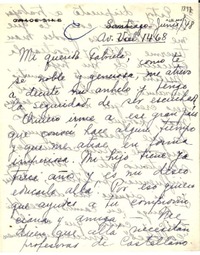 Santiago Junio 48
Av. Viel 1468
Mi querida Gabriela; como te
sé noble y generosa, me atrevo
a decirte mi anhelo y tengo
la seguridad de ser escuchada
Quiero irme a ese gran país
que conocí hace algún tiempo
y que me atrae en forma
imperiosa. Mi hijo tiene ya
trece años y es mi deseo
educarlo allá. Por eso quiero
que ayudes a tu
y amiga. Me
dicen que allá necesitan
profesoras de Castellano